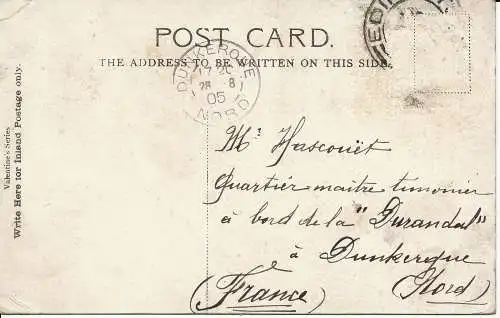 POST CARD.
THE ADDRESS TO BE WRITTEN ON THIS SIDE.
Valentine's Series
Write Here for Inland Postage only.
DUNKERQUE
17 20
28 8
05
NORD
EDIN
Mr Hascouët
Quartier maître timonier
à bord de la "Durandal"
à Dunkerque
(France) (Nord)